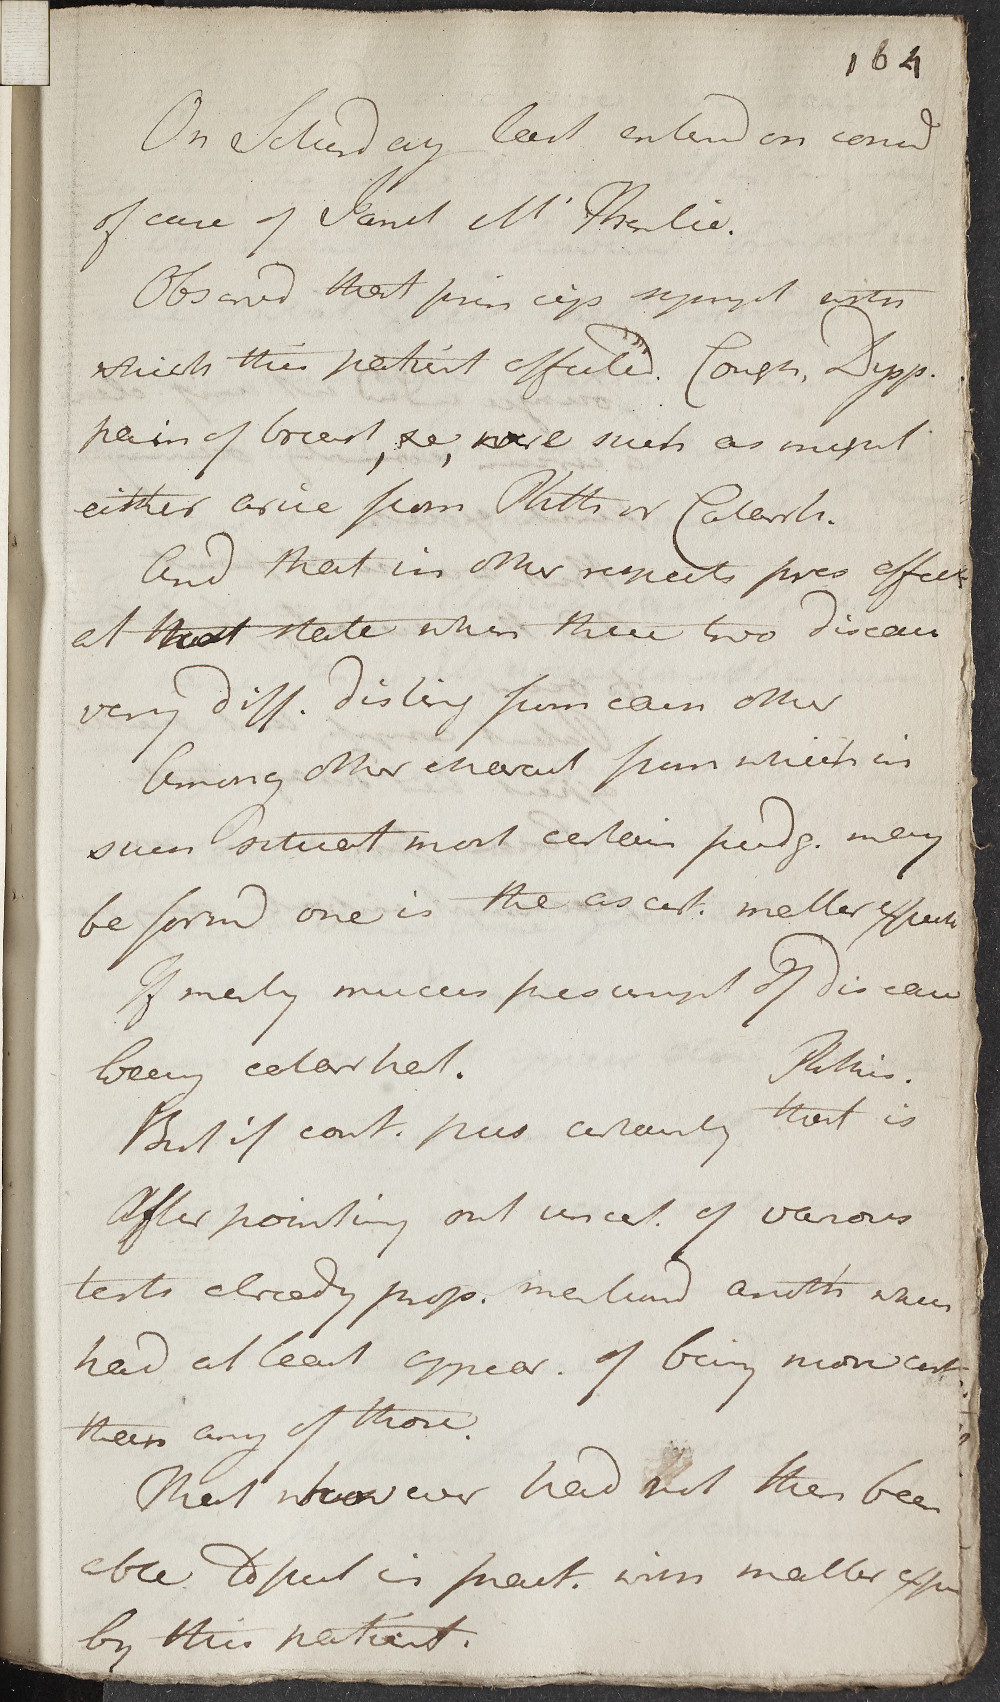 164
On Saturday last entend on consid
of case of Janet Mc Pharlic.
Observd that princips sympt with
which this patient affected. Cough, Dysp.
pain of breast, &c, were such as might
either arise from Phth or Catarrh.
And that in other respects pres affect
at that state when these two diseas
very diff. disting from each other
Among other charact from which in
such situat most certain judg. may
be formd one is the ascert. matter expect
If merly mucus presumpt of diseas
being catarrhal.
Phthis.
But if cont. pus certainly that is
After pointing out uncert. of various
tests already prop. mentiond anoth which
had at least appear. of being more cert.
than any of those.
That however had not then been
able to put in pract. with matter expe
by this patient.